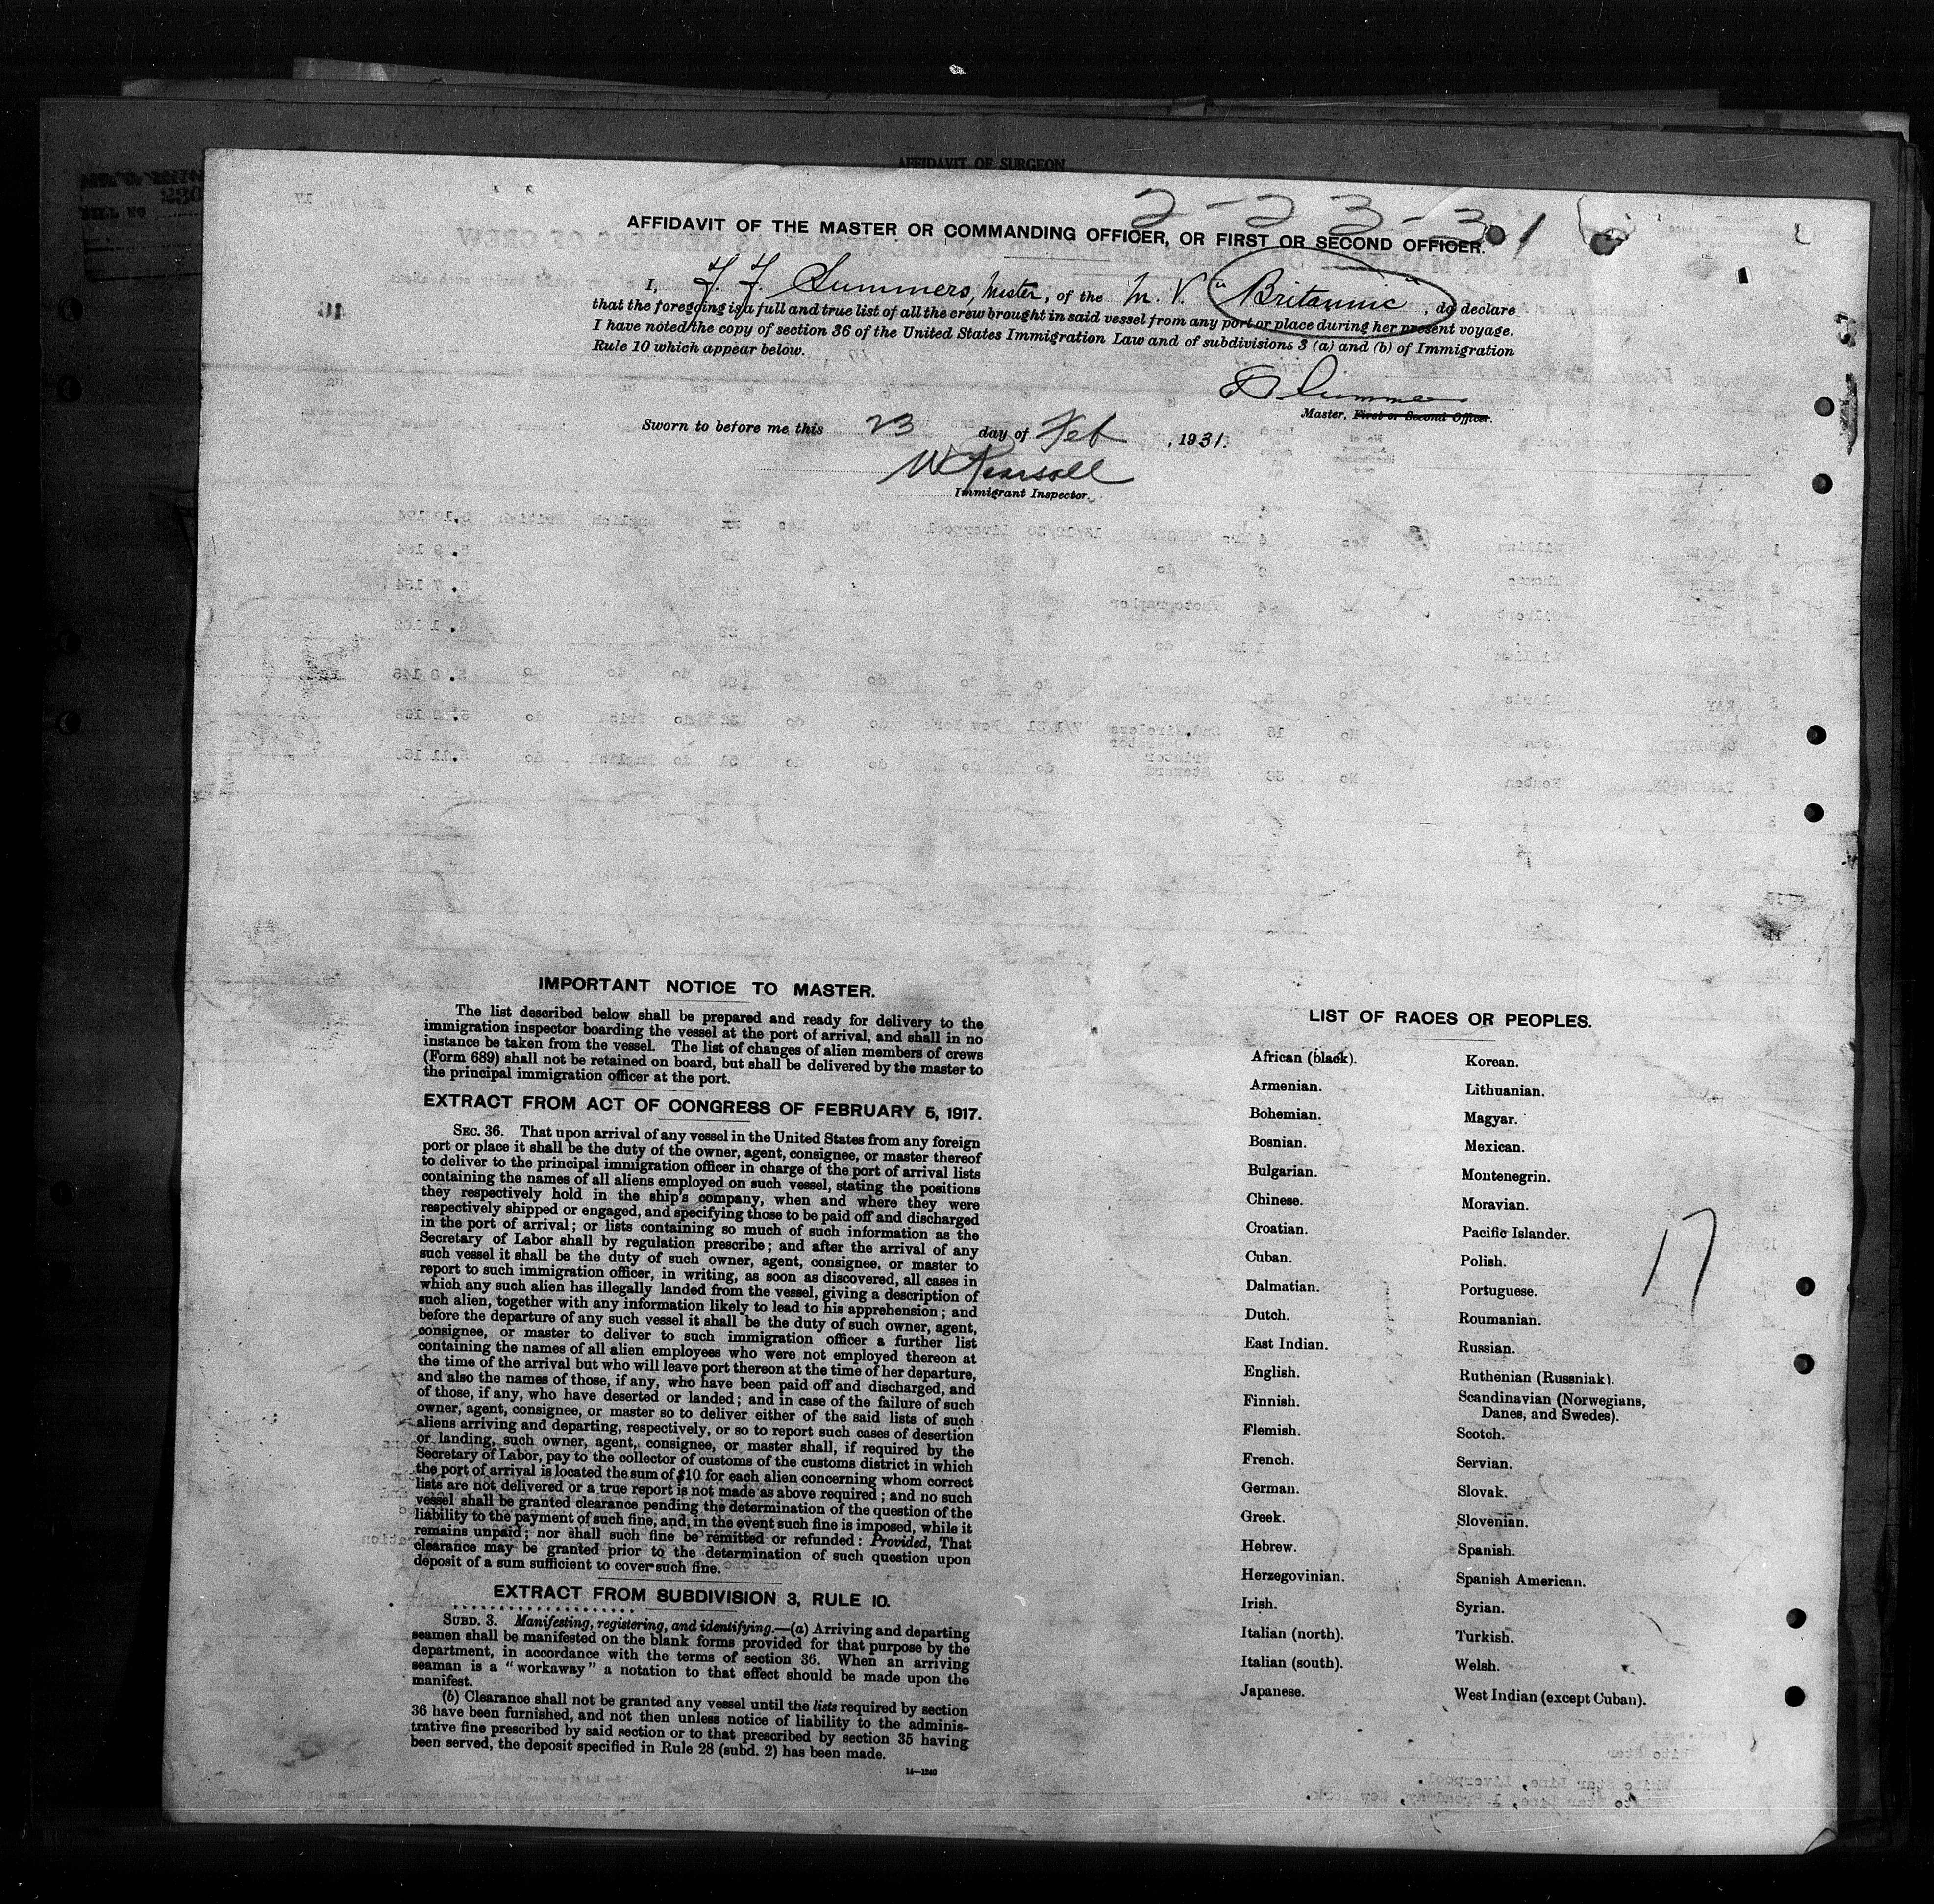 AFFIDAVIT OF SURGEON
BILL NO
2-23-31
AFFIDAVIT OF THE MASTER OR COMMANDING OFFICER, OR FIRST OR SECOND OFFICER.
I, F. F. Summers, Master, of the M. V. "Britannic", do declare
that the foregoing is a full and true list of all the crew brought in said vessel from any port or place during her present voyage.
I have noted the copy of section 36 of the United States Immigration Law and of subdivisions 3 (a) and (b) of Immigration
Rule 10 which appear below.
Summers
Master, First or Second Officer.
Sworn to before me this 23 day of Feb, 1931.
Immigrant Inspector.
IMPORTANT NOTICE TO MASTER.
The list described below shall be prepared and ready for delivery to the
immigration inspector boarding the vessel at the port of arrival, and shall in no
instance be taken from the vessel. The list of changes of alien members of crews
(Form 689) shall not be retained on board, but shall be delivered by the master to
the principal immigration officer at the port.
EXTRACT FROM ACT OF CONGRESS OF FEBRUARY 5, 1917.
SEC. 36. That upon arrival of any vessel in the United States from any foreign
port or place it shall be the duty of the owner, agent, consignee, or master thereof
to deliver to the principal immigration officer in charge of the port of arrival lists
containing the names of all aliens employed on such vessel, stating the positions
they respectively hold in the ship's company, when and where they were
respectively shipped or engaged, and specifying those to be paid off and discharged
in the port of arrival; or lists containing so much of such information as the
Secretary of Labor shall by regulation prescribe; and after the arrival of any
such vessel it shall be the duty of such owner, agent, consignee, or master to
report to such immigration officer, in writing, as soon as discovered, all cases in
which any such alien has illegally landed from the vessel, giving a description of
such alien, together with any information likely to lead to his apprehension; and
before the departure of any such vessel it shall be the duty of such owner, agent,
consignee, or master to deliver to such immigration officer a further list
containing the names of all alien employees who were not employed thereon at
the time of the arrival but who will leave port thereon at the time of her departure,
and also the names of those, if any, who have been paid off and discharged, and
of those, if any, who have deserted or landed; and in case of the failure of such
owner, agent, consignee, or master so to deliver either of the said lists of such
aliens arriving and departing, respectively, or so to report such cases of desertion
or landing, such owner, agent, consignee, or master shall, if required by the
Secretary of Labor, pay to the collector of customs of the customs district in which
the port of arrival is located the sum of $10 for each alien concerning whom correct
lists are not delivered or a true report is not made as above required; and no such
vessel shall be granted clearance pending the determination of the question of the
liability to the payment of such fine, and, in the event such fine is imposed, while it
remains unpaid; nor shall such fine be remitted or refunded: Provided, That
clearance may be granted prior to the determination of such question upon
deposit of a sum sufficient to cover such fine.
EXTRACT FROM SUBDIVISION 3, RULE 10.
SUBD. 3. Manifesting, registering, and identifying.—(a) Arriving and departing
seamen shall be manifested on the blank forms provided for that purpose by the
department, in accordance with the terms of section 36. When an arriving
seaman is a "workaway" a notation to that effect should be made upon the
manifest.
(b) Clearance shall not be granted any vessel until the lists required by section
36 have been furnished, and not then unless notice of liability to the adminis-
trative fine prescribed by said section or to that prescribed by section 35 having
been served, the deposit specified in Rule 28 (subd. 2) has been made.
14—1240
LIST OF RACES OR PEOPLES.
African (black).
Armenian.
Bohemian.
Bosnian.
Bulgarian.
Chinese.
Croatian.
Cuban.
Dalmatian.
Dutch.
East Indian.
English.
Finnish.
Flemish.
French.
German.
Greek.
Hebrew.
Herzegovinian.
Irish.
Italian (north).
Italian (south).
Japanese.
Korean.
Lithuanian.
Magyar.
Mexican.
Montenegrin.
Moravian.
Pacific Islander.
Polish.
Portuguese.
Roumanian.
Russian.
Ruthenian (Russniak).
Scandinavian (Norwegians,
Danes, and Swedes).
Scotch.
Servian.
Slovak.
Slovenian.
Spanish.
Spanish American.
Syrian.
Turkish.
Welsh.
West Indian (except Cuban).
17